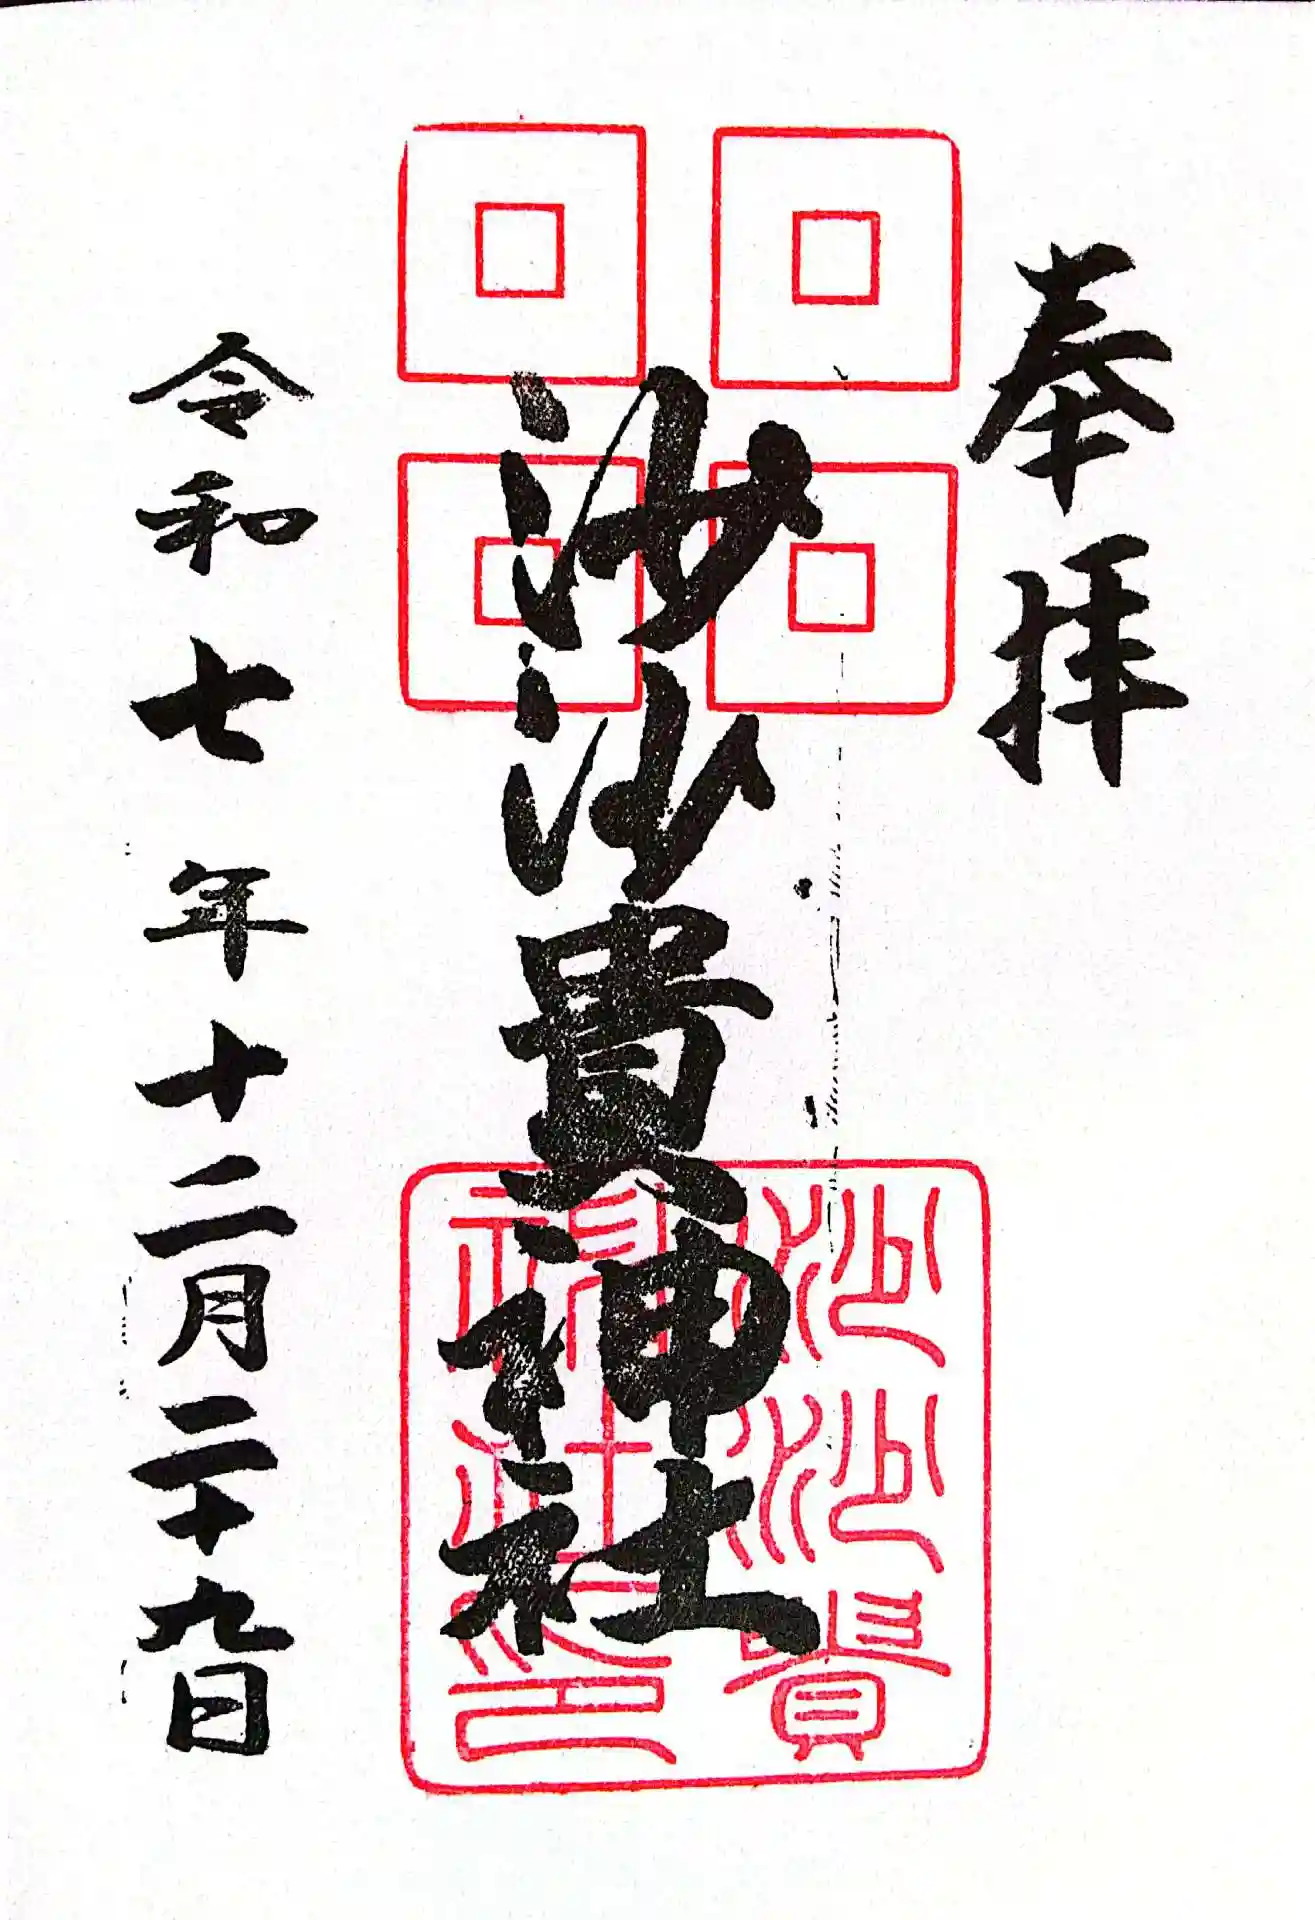 奉拝
沙沙貴神社
沙沙貴
神社印
令和七年十二月二十九日